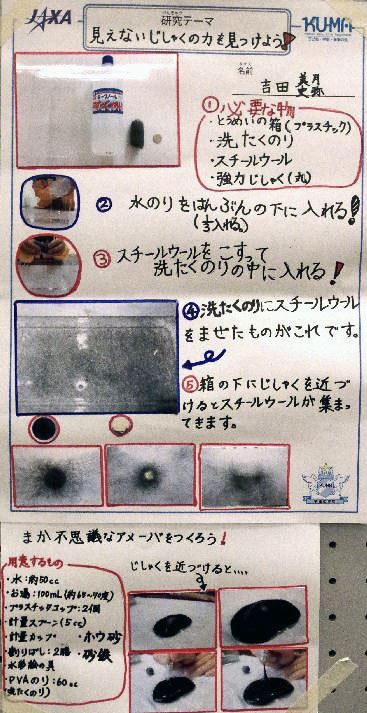 JAXA
研究テーマ
KUMA
見えないじしゃくの力を見つけよう!
名前
吉田 美月
史弥
① 必要な物
・とうめいの箱(プラスチック)
・洗たくのり
・スチールウール
・強力じしゃく(丸)
② 水のりをはんぶんの下に入れる!
③ スチールウールをこすって
洗たくのりの中に入れる!
④ 洗たくのりにスチールウール
をまぜたものがこれです。
⑤ 箱の下にじしゃくを近づ
けるとスチールウールが集まっ
てきます。
まか不思議なアメーバをつくろう!
用意するもの
じしゃくを近づけると....
・水:約50cc
・お湯:100mL(約65〜70度)
・プラスチックコップ:2個
・計量スプーン(5cc)
・計量カップ
・ホウ砂
・割りばし:2膳
・砂鉄
・水彩絵の具
・PVAのり:60cc
(洗たくのり)